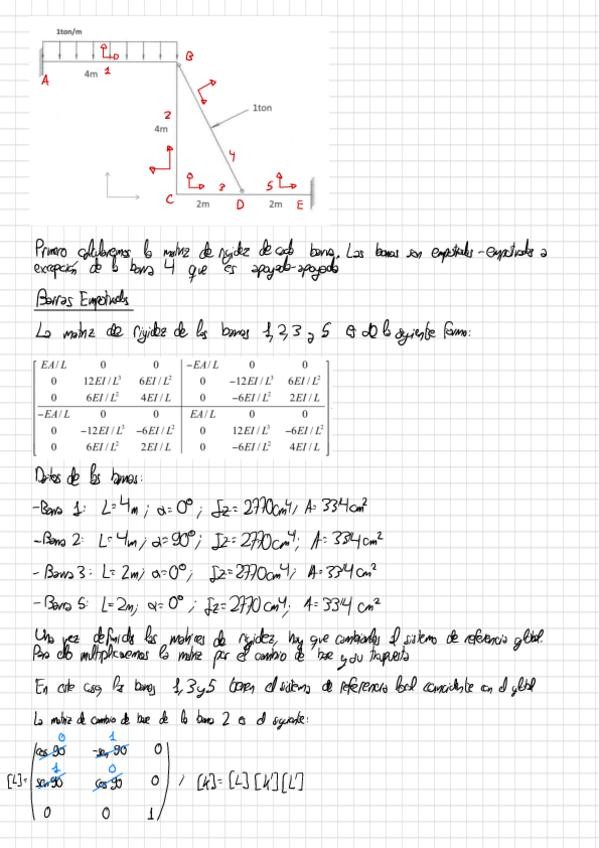 1ton/m
A
4m
1
B
2
4m
1ton
4
C
2m
3
D
5
2m
E
Primero calcularemos la matriz de rigidez de cada barra. Las barras son empotradas-empotradas a
excepción de la barra 4 que es apoyado-apoyado
Barras Empotradas
La matriz de rigidez de las barras 1, 2, 3 y 5 es de la siguiente forma:
EA/L 0 0 -EA/L 0 0
0 12EI/L³ 6EI/L² 0 -12EI/L³ 6EI/L²
0 6EI/L² 4EI/L 0 -6EI/L² 2EI/L
-EA/L 0 0 EA/L 0 0
0 -12EI/L³ -6EI/L² 0 12EI/L³ -6EI/L²
0 6EI/L² 2EI/L 0 -6EI/L² 4EI/L
Datos de las barras:
-Barra 1: L=4m; α=0º; Iz=2770cm⁴; A=33'4cm²
-Barra 2: L=4m; α=90º; Iz=2770cm⁴; A=33'4cm²
-Barra 3: L=2m; α=0º; Iz=2770cm⁴; A=33'4cm²
-Barra 5: L=2m; α=0º; Iz=2770cm⁴; A=33'4cm²
Una vez definida las matrices de rigidez, hay que cambiarlas al sistema de referencia global
Para ello multiplicaremos la matriz por el cambio de base y su traspuesta
En este caso las barras 1, 3 y 5 tienen el sistema de referencia local coincidente con el global
La matriz de cambio de base de la barra 2 es el siguiente:
0 1
cos 90 -sen 90 0
1 0
[L]= sen 90 cos 90 0 ; [K]=[L][K][L]
0 0 1